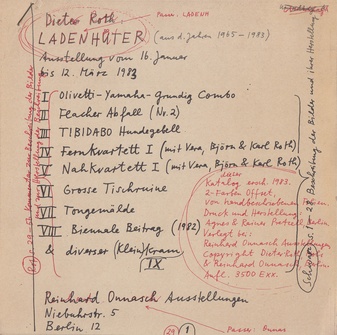 Dieter Roth.
LADENHÜTER (aus d. Jahren 1965–1983)
Passer: LADENH
Ausstellung vom 16. Januar
bis 12. März 1983
I Olivetti-Yamaha-Grundig Combo
II Flacher Abfall (Nr. 2)
III TIBIDABO Hundegebell
IV Fernkvartett I (mit Vera, Björn & Karl Roth)
V Nahkvartett I (mit Vera, Björn & Karl Roth)
VI Grosse Tischruine
VII Tongemälde
VIII Biennale Beitrag (1982)
& diverser (Klein)Kram
IX
Reinhard Onnasch Ausstellungen
Niebuhrstr. 5
Berlin 12
Katalog ersch. 1983.
2-Farben Offset,
von handbeschriebenen
Druck und Herstellung
Agnes & Rainer Pretzell, Berlin
Verlegt bei:
Reinhard Onnasch Ausstellungen
Copyright Dieter Roth
& Reinhard Onnasch
Aufl. 3500 Exx.
Beschreibung der Bilder und ihrer Herstellung
29
1
Passer: